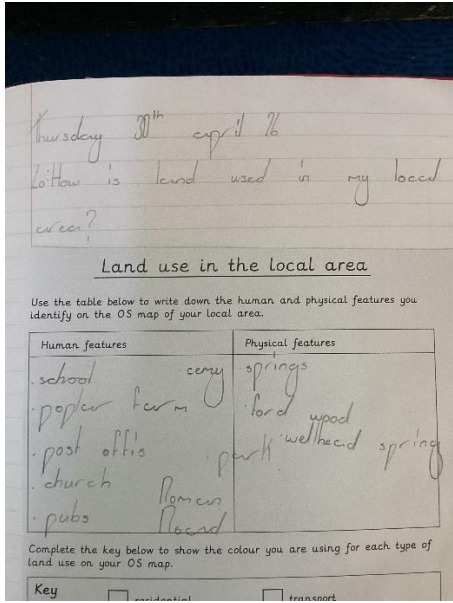 Thursday 30th april 26
Lo: How is land used in my local
area?
Land use in the local area
Use the table below to write down the human and physical features you
identify on the OS map of your local area.
Human features
· school
· poplar farm
· post offis
· church
· pubs
Roman
Road
Physical features
· springs
· ford wood
· park · wellhead spring
Complete the key below to show the colour you are using for each type of
land use on your OS map.
Key
residential
transport